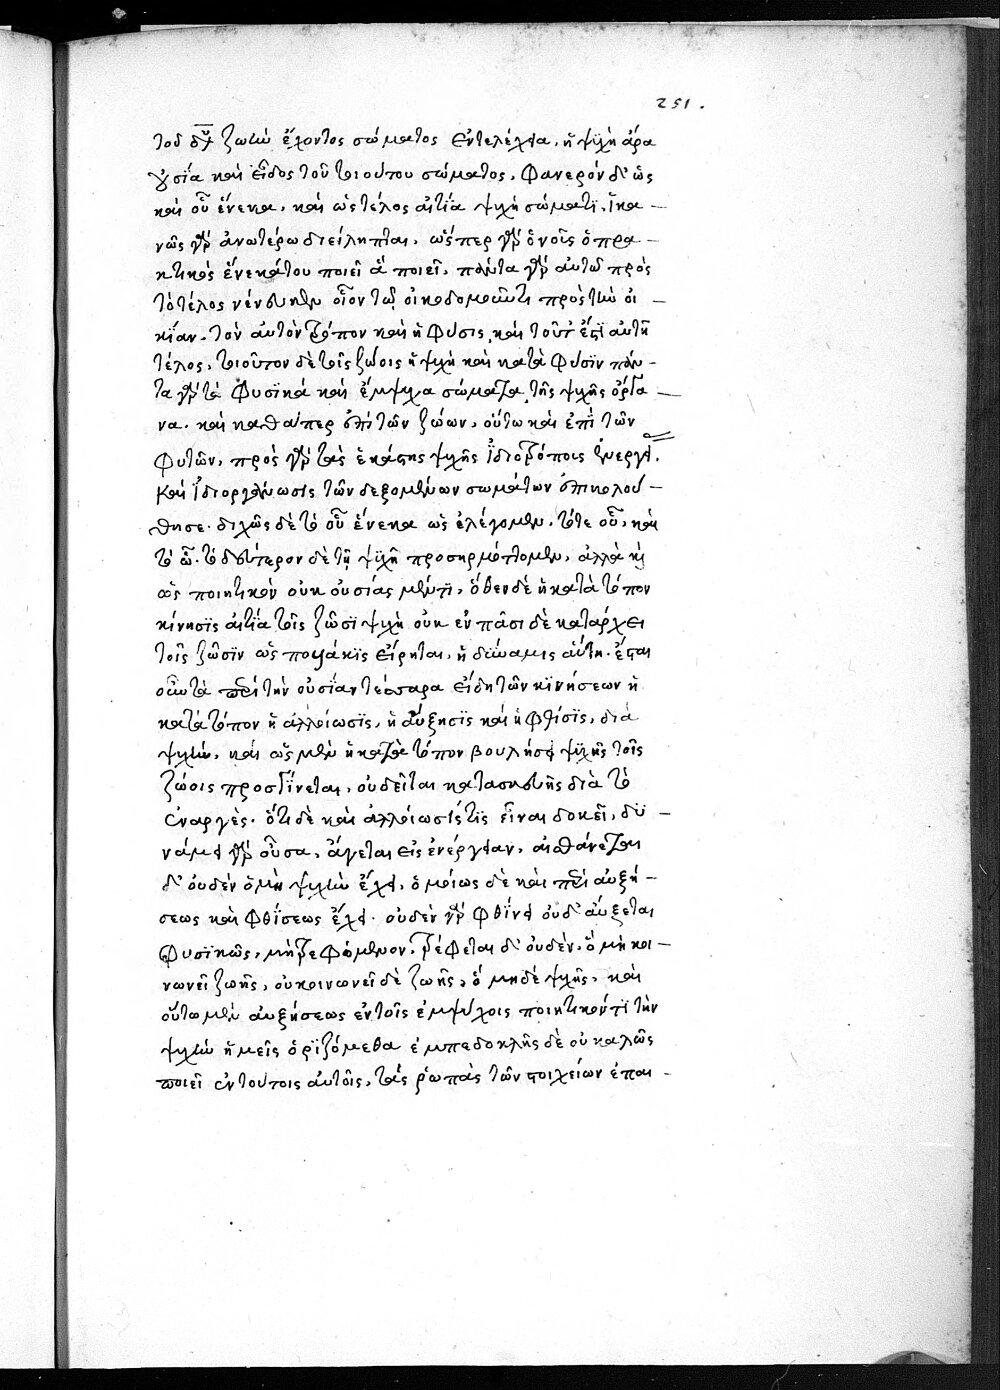 251.
τοῦ δυ ζωὴν ἔχοντος σώματος ἐντελέχεια, ἡ ψυχὴ ἄρα
οὐσία καὶ εἶδος τοῦ τοιούτου σώματος. φανερὸν δ' ὡς
καὶ οὗ ἕνεκα, καὶ ὡς τέλος αἰτία ψυχὴ σώματι. ἱκα –
νῶς γὰρ ἀνωτέρω διείληπται. ὥσπερ γὰρ ὁ νοῦς ὁ πρα –
κτικὸς ἕνεκά του ποιεῖ ἃ ποιεῖ, πάντα γὰρ αὐτῷ πρὸς
τὸ τέλος νένευκεν οἷον τῷ οἰκοδομοῦντι πρὸς τὴν οἰ –
κίαν. τὸν αὐτὸν τρόπον καὶ ἡ φύσις, καὶ τοῦτ' ἔστι αὐτῇ
τέλος. τοιοῦτον δὲ τοῖς ζώοις ἡ ψυχὴ καὶ κατὰ φύσιν πάν –
τα γὰρ τὰ φυσικὰ καὶ ἔμψυχα σώματα, τῆς ψυχῆς ὄργα –
να. καὶ καθάπερ ἐπὶ τῶν ζώων, οὕτω καὶ ἐπὶ τῶν
φυτῶν, πρὸς γὰρ τὰς ἑκάστης ψυχῆς ἰδιοτρόποις ἐνεργεί.
καὶ ἰδιοργάνωσις τῶν δεξομένων σωμάτων ἐπικολού –
θησε. διχῶς δὲ τὸ οὗ ἕνεκα ὡς ἐλέγομεν. τότε οὗ, καὶ
τὸ ᾧ. τὸ δεύτερον δὲ τῇ ψυχῇ προσηρμόττομεν, ἀλλὰ καὶ
ὡς ποιητικὸν οὐκ οὐσίας μέντι, ὅθεν δὲ ἡ κατὰ τόπον
κίνησις αἰτία τοῖς ζῶσι ψυχὴ οὐκ ἐν πᾶσι δὲ κατάρχει
τοῖς ζῶσιν ὡς πολλάκις εἴρηται, ἡ δύναμις αὕτη. ἔσται
οὖν τὰ περὶ τὴν οὐσίαν τέσσαρα εἴδη τῶν κινήσεων ἡ
κατὰ τόπον ἡ ἀλλοίωσις, ἡ αὔξησις καὶ ἡ φθίσις, διὰ
ψυχὴν. καὶ ὡς μὲν ἡ κατὰ τόπον βουλήσει ψυχῆς τοῖς
ζώοις προσγίνεται, οὐ δεῖται κατασκευῆς διὰ τὸ
ἐναργές. ὅτι δὲ καὶ ἀλλοίωσις τις εἶναι δοκεῖ, δυ –
νάμει γὰρ οὖσα, ἄγεται εἰς ἐνέργειαν, αἰσθάνεται
δ' οὐδὲν ὃ μὴ ψυχὴν ἔχει, ὁμοίως δὲ καὶ περὶ αὐξή –
σεως καὶ φθίσεως ἔχει. οὐδὲν γὰρ φθίνει οὐδ' αὔξεται
φυσικῶς, μὴ τρεφόμενον. τρέφεται δ' οὐδὲν, ὃ μὴ κοι –
νωνεῖ ζωῆς, οὐ κοινωνεῖ δὲ ζωῆς, ὃ μηδὲ ψυχῆς, καὶ
οὕτω μὲν αὐξήσεως ἐν τοῖς ἐμψύχοις ποιητικόν τι τὴν
ψυχὴν ἡμεῖς ὁριζόμεθα ἐμπεδοκλῆς δὲ οὐ καλῶς
ποιεῖ ἐν τούτοις αὐτοῖς, τὰς ῥοπὰς τῶν στοιχείων ἐπαι –